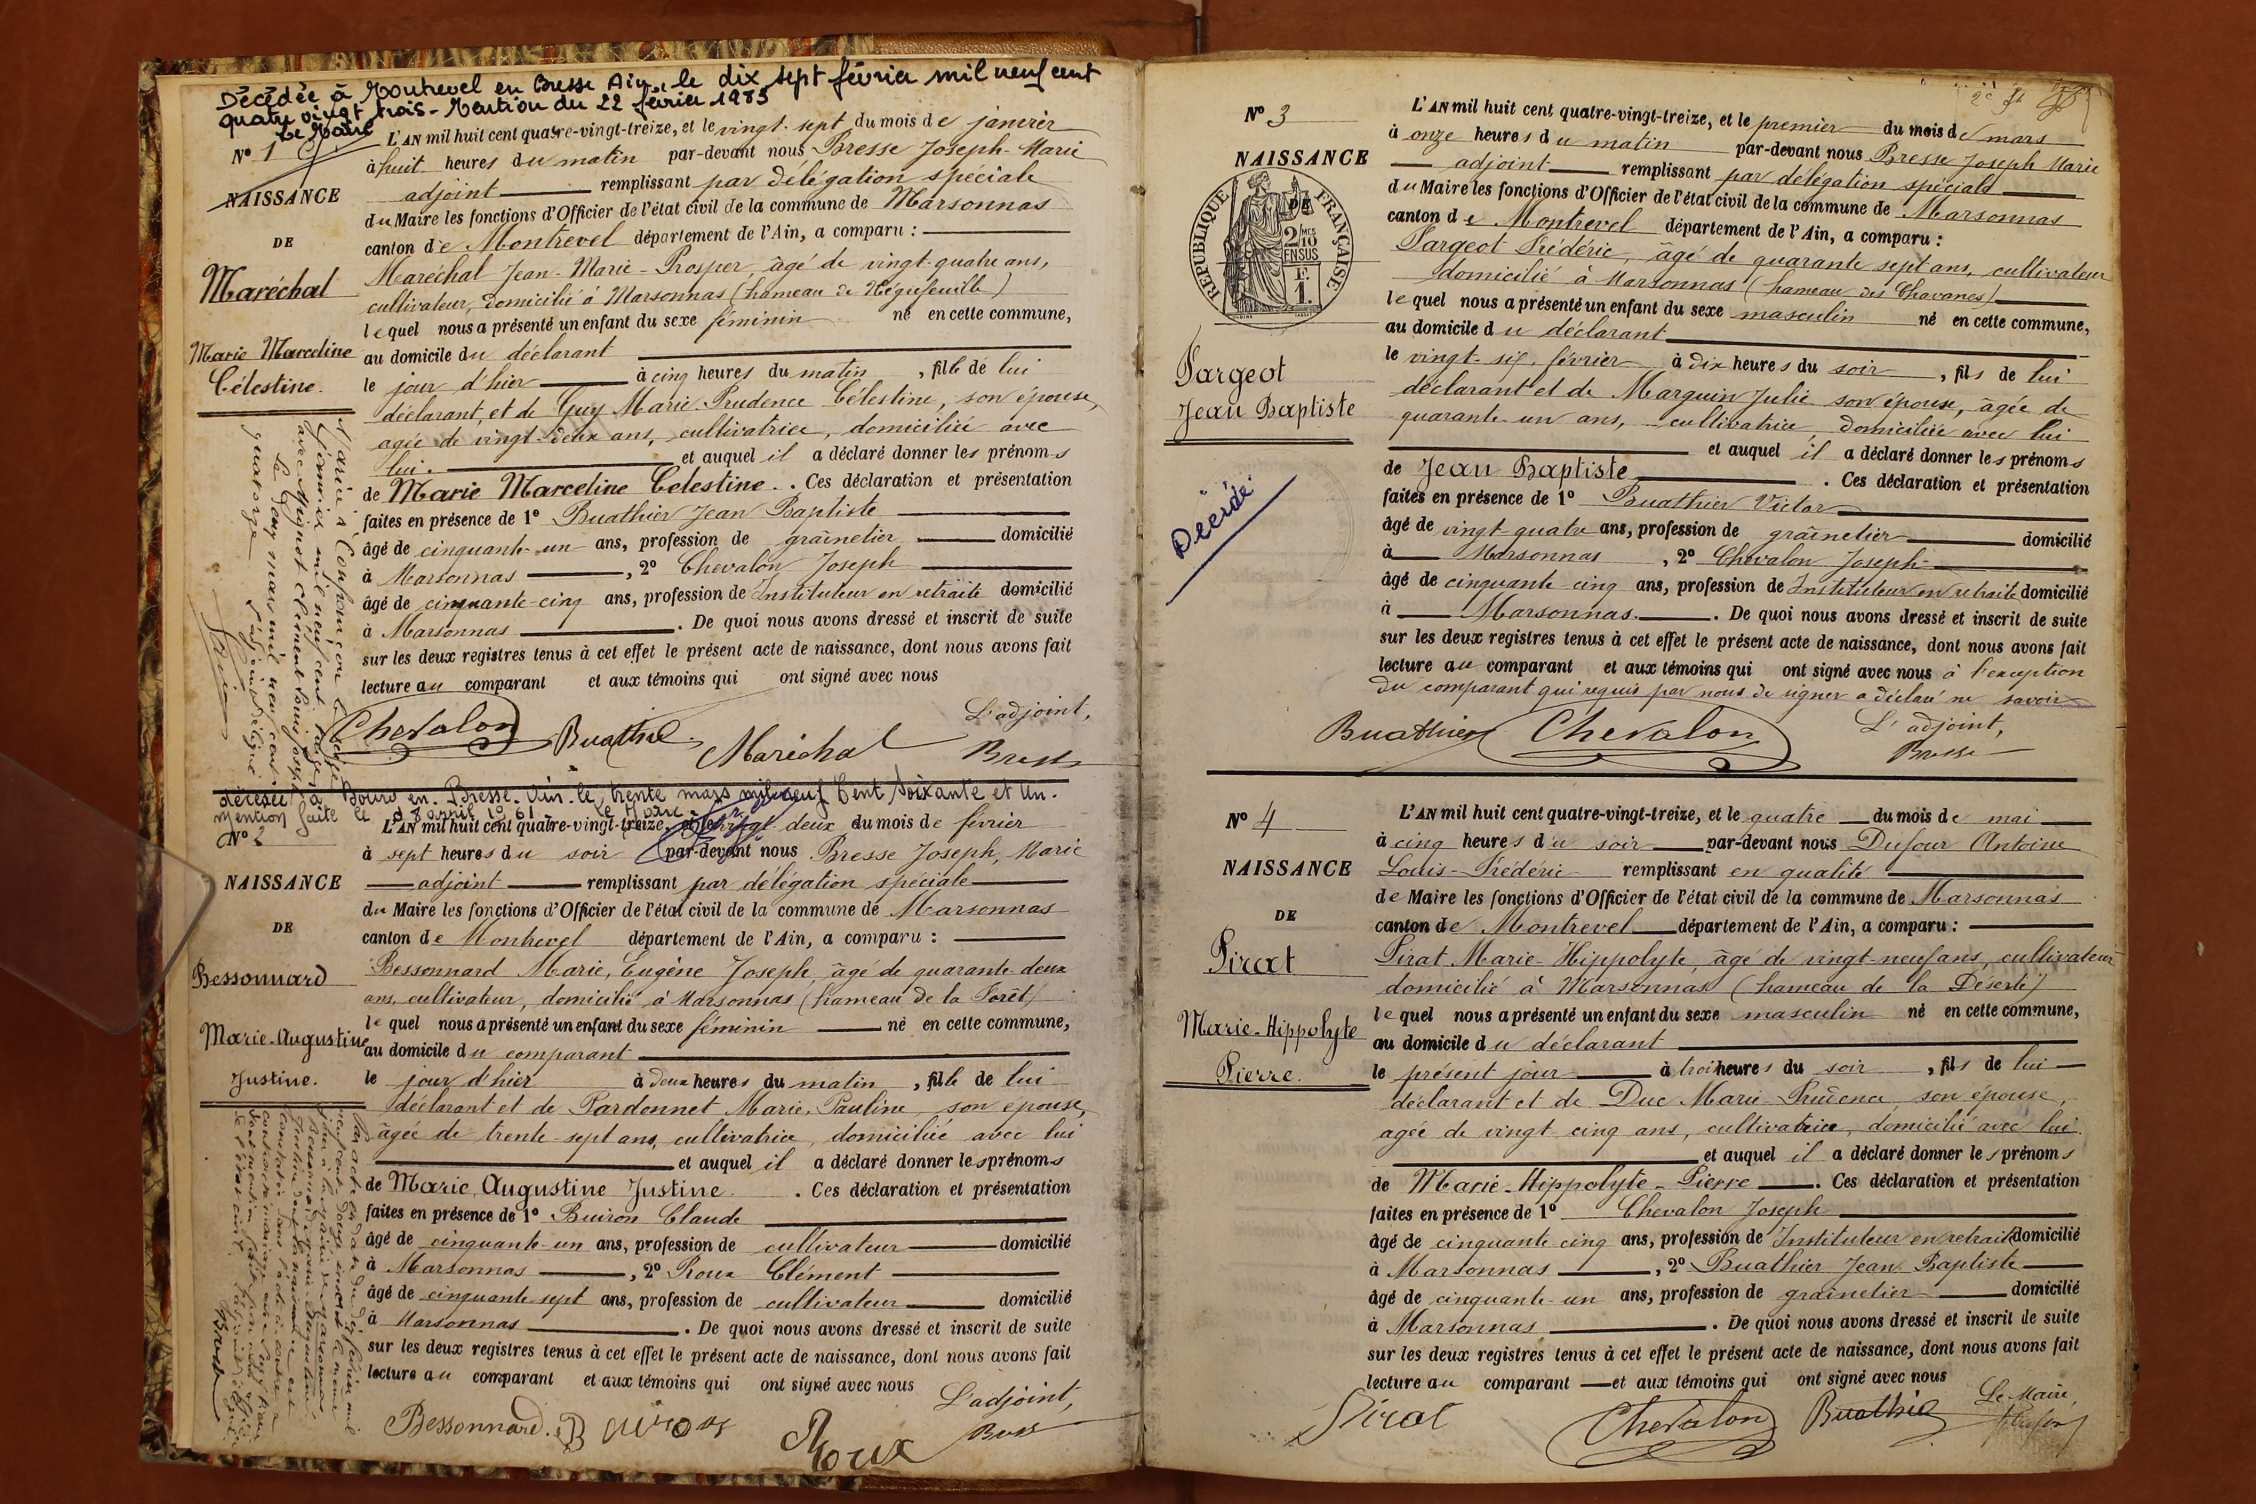 Décédée à Montrevel en Bresse Ain, le dix sept février mil neuf cent
quatre vingt trois - Mention du 22 février 1983
Le Maire
N° 1
NAISSANCE
DE
Maréchal
Marie Marceline
Célestine.
L'AN mil huit cent quatre-vingt-treize, et le vingt-sept du mois de janvier
à huit heures du matin par-devant nous Bresse Joseph-Marie
adjoint remplissant par délégation spéciale
du Maire les fonctions d'Officier de l'état civil de la commune de Marsonnas
canton de Montrevel département de l'Ain, a comparu :
Maréchal Jean-Marie-Prosper, âgé de vingt-quatre ans,
cultivateur, domicilié à Marsonnas (hameau de Néguefeuille)
lequel nous a présenté un enfant du sexe féminin né en cette commune,
au domicile du déclarant
le jour d'hier à cinq heures du matin, fille de lui
déclarant, et de Guy Marie-Prudence Célestine, son épouse,
agée de vingt-deux ans, cultivatrice, domiciliée avec
lui. et auquel il a déclaré donner les prénoms
de Marie Marceline Celestine. . Ces déclaration et présentation
faites en présence de 1° Buathier Jean Baptiste
âgé de cinquante-un ans, profession de grainetier domicilié
à Marsonnas, 2° Chevalon Joseph
âgé de cinquante-cinq ans, profession de Instituteur en retraite domicilié
à Marsonnas. De quoi nous avons dressé et inscrit de suite
sur les deux registres tenus à cet effet le présent acte de naissance, dont nous avons fait
lecture au comparant et aux témoins qui ont signé avec nous
L'adjoint,
Chevalon Buathier Maréchal Bresse
Mariée à Confrançon le
avec Mignot Clément Louis Joseph
Le deux mars mil neuf cent
quatorze L'adjoint délégué
décédée à Bourg en Bresse Ain le trente mars mil neuf Cent Soixante et Un.
mention faite le 8 avril 1961 Le Maire
N° 2
NAISSANCE
DE
Bessonnard
Marie-Augustine
Justine.
L'AN mil huit cent quatre-vingt-treize, et le vingt deux du mois de février
à sept heures du soir par-devant nous Bresse Joseph, Marie
adjoint remplissant par délégation spéciale
du Maire les fonctions d'Officier de l'état civil de la commune de Marsonnas
canton de Montrevel département de l'Ain, a comparu :
Bessonnard Marie, Eugène Joseph, âgé de quarante-deux
ans, cultivateur, domicilié à Marsonnas (hameau de la Forêt)
lequel nous a présenté un enfant du sexe féminin né en cette commune,
au domicile du comparant
le jour d'hier à deux heures du matin, fille de lui
déclarant et de Pardonnet Marie, Pauline, son épouse,
âgée de trente-sept ans, cultivatrice, domiciliée avec lui
et auquel il a déclaré donner les prénoms
de Marie, Augustine Justine. . Ces déclaration et présentation
faites en présence de 1° Buiron Claude
âgé de cinquante-un ans, profession de cultivateur domicilié
à Marsonnas, 2° Roux Clément
âgé de cinquante sept ans, profession de cultivateur domicilié
à Marsonnas. De quoi nous avons dressé et inscrit de suite
sur les deux registres tenus à cet effet le présent acte de naissance, dont nous avons fait
lecture au comparant et aux témoins qui ont signé avec nous
L'adjoint,
Bessonnard. Buiron Roux Bresse
N° 3
NAISSANCE
DE
RÉPUBLIQUE FRANÇAISE
2/10 MES
EN SUS
F.
1.
Pargeot
Jean Baptiste
Décédé.
L'AN mil huit cent quatre-vingt-treize, et le premier du mois de mars
à onze heures du matin par-devant nous Bresse Joseph Marie
adjoint remplissant par délégation spéciale
du Maire les fonctions d'Officier de l'état civil de la commune de Marsonnas
canton de Montrevel département de l'Ain, a comparu :
Pargeot Frédéric, âgé de quarante sept ans, cultivateur
domicilié à Marsonnas (hameau des Chavanes)
lequel nous a présenté un enfant du sexe masculin né en cette commune,
au domicile du déclarant
le vingt-six février à dix heures du soir, fils de lui
déclarant et de Marguin Julie son épouse, âgée de
quarante-un ans, cultivatrice, domiciliée avec lui
et auquel il a déclaré donner les prénoms
de Jean Baptiste. Ces déclaration et présentation
faites en présence de 1° Buathier Victor
âgé de vingt-quatre ans, profession de grainetier domicilié
à Marsonnas, 2° Chevalon Joseph
âgé de cinquante cinq ans, profession de Instituteur en retraite domicilié
à Marsonnas. De quoi nous avons dressé et inscrit de suite
sur les deux registres tenus à cet effet le présent acte de naissance, dont nous avons fait
lecture au comparant et aux témoins qui ont signé avec nous à l'exception
du comparant qui requis par nous de signer a déclaré ne savoir
L'adjoint,
Buathier Chevalon Bresse
N° 4
NAISSANCE
DE
Pirat
Marie-Hippolyte
Pierre.
L'AN mil huit cent quatre-vingt-treize, et le quatre du mois de mai
à cinq heures du soir par-devant nous Dufour Antoine
Louis-Frédéric remplissant en qualité
de Maire les fonctions d'Officier de l'état civil de la commune de Marsonnas
canton de Montrevel département de l'Ain, a comparu :
Pirat Marie-Hippolyte, âgé de vingt-neuf ans, cultivateur
domicilié à Marsonnas (hameau de la Déserte)
lequel nous a présenté un enfant du sexe masculin né en cette commune,
au domicile du déclarant
le présent jour à trois heures du soir, fils de lui
déclarant et de Duc Marie-Prudence son épouse,
agée de vingt-cinq ans, cultivatrice, domicilié avec lui.
et auquel il a déclaré donner les prénoms
de Marie-Hippolyte-Pierre. Ces déclaration et présentation
faites en présence de 1° Chevalon Joseph
âgé de cinquante cinq ans, profession de Instituteur en retraite domicilié
à Marsonnas, 2° Buathier Jean Baptiste
âgé de cinquante-un ans, profession de grainetier domicilié
à Marsonnas. De quoi nous avons dressé et inscrit de suite
sur les deux registres tenus à cet effet le présent acte de naissance, dont nous avons fait
lecture au comparant et aux témoins qui ont signé avec nous
Le Maire,
Pirat Chevalon Buathier Dufour